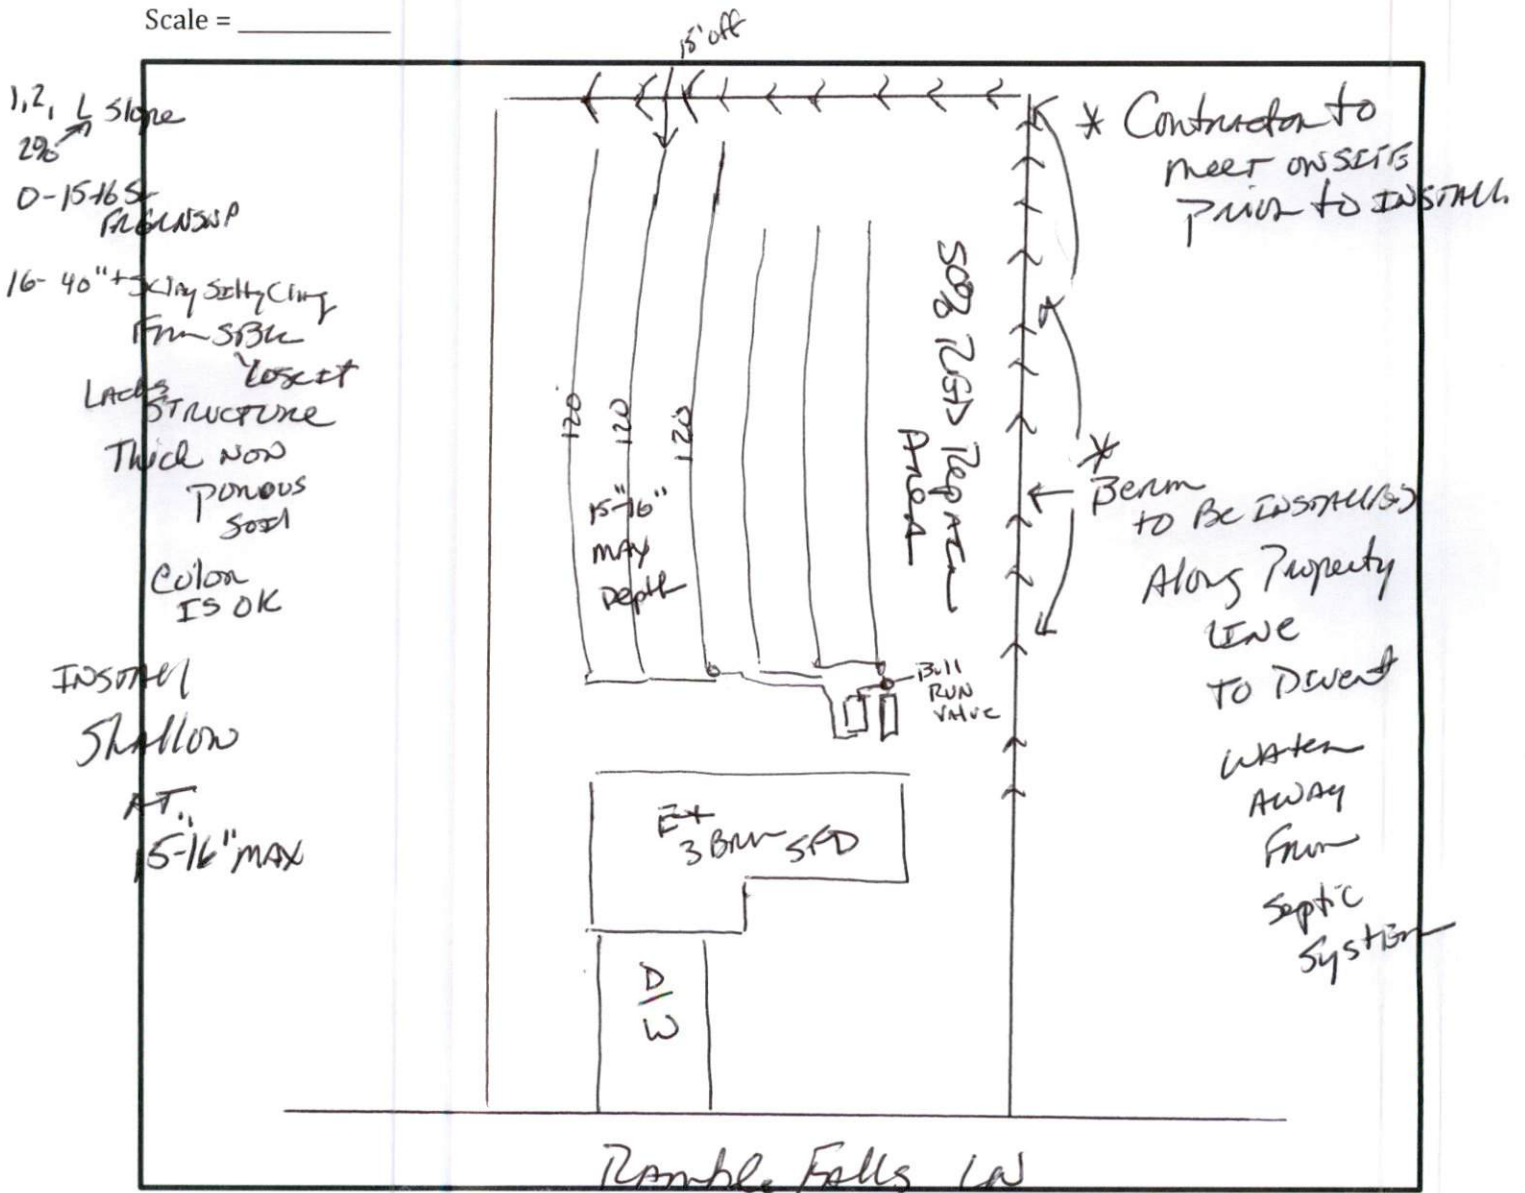 Scale =
15' off
1,2, L Slope
2%
0-15-16 SL
FRGRNSNP
16-40"+ SClay Silty Clay
Firm SBK
Lacks
STRUCTURE
Thick NON
Porous
Soil
Color
IS OK
INSTALL
Shallow
AT
15-16" MAX
120
120
120
15-16"
MAX
Depth
50% RED Repair
Area
* Contractor to
meet ONSITE
Prior to INSTALL
*
Berm
to Be INSTALLED
Along Property
LINE
TO Divert
Water
AWAY
From
Septic
System
Bull
RUN
Valve
Ex
3 Brm SFD
D/W
Ramble Falls LN